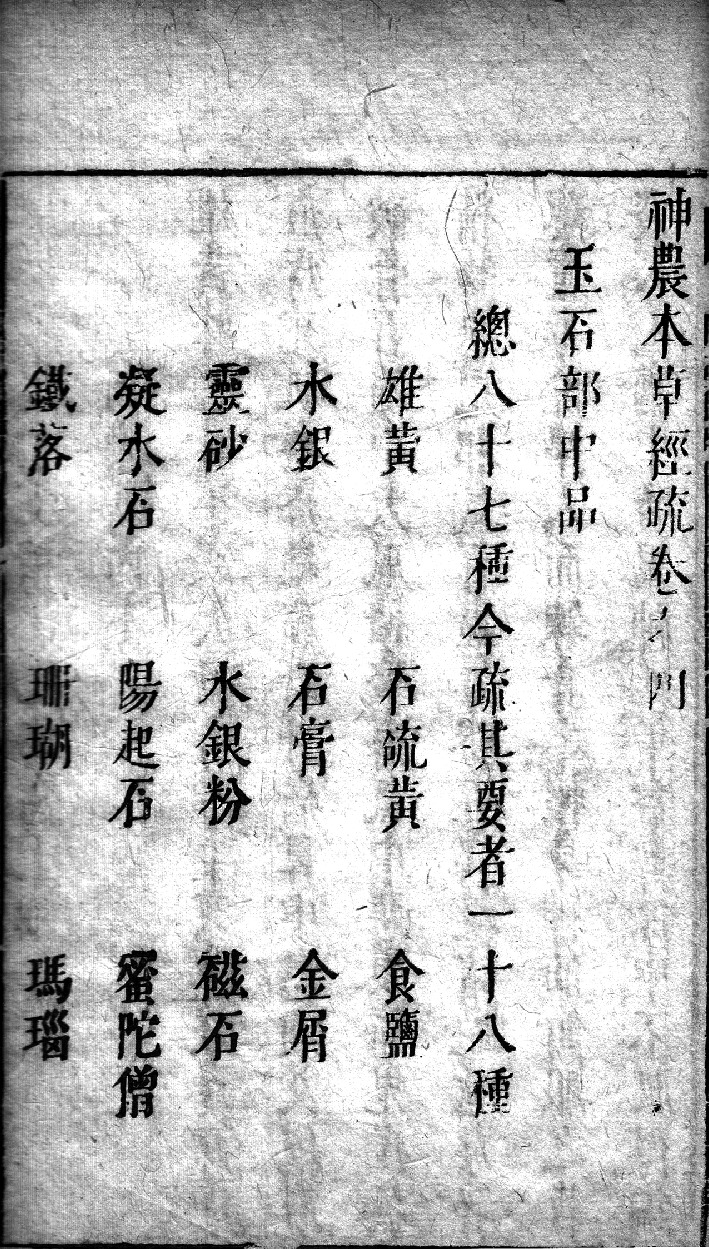 神農本草經疏卷之四
玉石部中品
總八十七種今疏其要者一十八種
雄黃 石硫黃 食鹽
水銀 石膏 金屑
靈砂 水銀粉 磁石
凝水石 陽起石 蜜陀僧
鐵落 珊瑚 瑪瑙